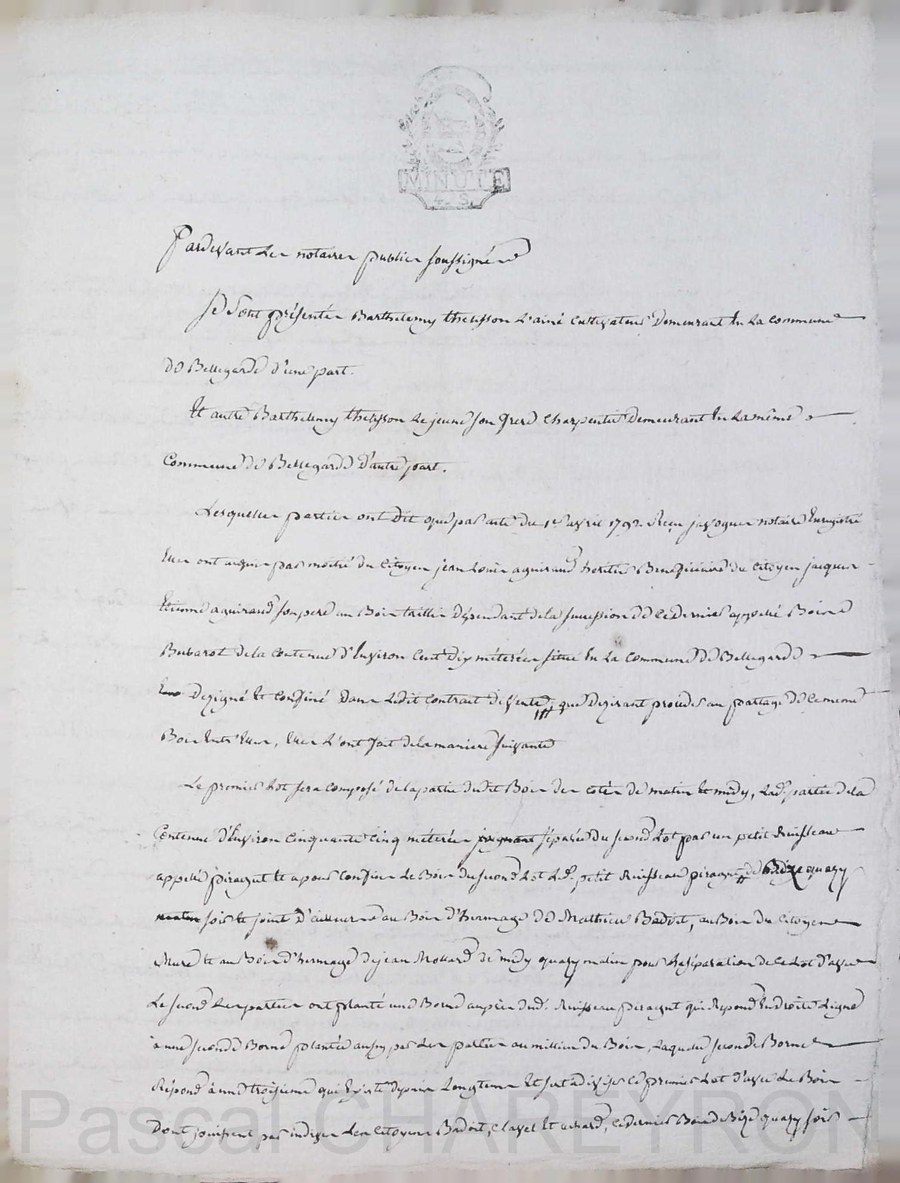 MINUTE
4. S.
Pardevant les notaires publics soussignés
Se sont présentés Barthelemy thelisson L'ainé Cultivateur Demeurant En La Commune
de Bellegarde d'une part.
Et autre Barthelemy thelisson Lejeune son frere Charpentier Demeurant En Lamême
Commune de Bellegarde D'autre part.
Lesquelles parties ont dit que par acte du 1er avril 1793 notaire Enregistré
Eux ont acquis par moitié du Citoyen jean Louis aguiraud heritier Beneficiaire du Citoyen jacques
Etienne aguiraud son pere un Bois taillis Dépendant de la succession de Cedernier appellé Bois de
Bubarot de la Contenue d'Environ Cent Dix métérées situé En La Commune de Bellegarde
Dezigné Et Confiné Dans Ledit Contrat de Vente, que Dezirant proceder au partage de Cememe
Bois Entr'Eux, Eux L'ont fait de la maniere suivante
Le premier Lot sera Composé de la partie dudit Bois des cotés de matin Et midy, Lad. partie de la
Contenue d'Environ Cinquante Cinq métérées séparée du second Lot par un petit Ruisseau
appellé piraigut Et a pour Confins Le Bois du second Lot Led. petit Ruisseau piraigut de Bize quazy
soir Le joint au Bois d'hermage de Mathieu Badoit, au Bois du Citoyen
Mure Et au Bois d'hermage de jean Mollard de midy quazy matin pour La séparation de Ce Lot d'avec
Le second Les parties ont planté une Borne auprès dud. Ruisseau piraigut qui Repond En droite Ligne
à une seconde Borne plantée aussy par Les parties au millieu du Bois, Laquelle seconde Borne
Répond à une troisieme qui Existe depuis Longtems Et sert à diviser Ce premier Lot d'avec Le Bois
Dont jouissent par indivis Les Citoyens Badoit, Clavel Et, Cedernier Bois de Bize quazy soir
Pascal CHAREYRON